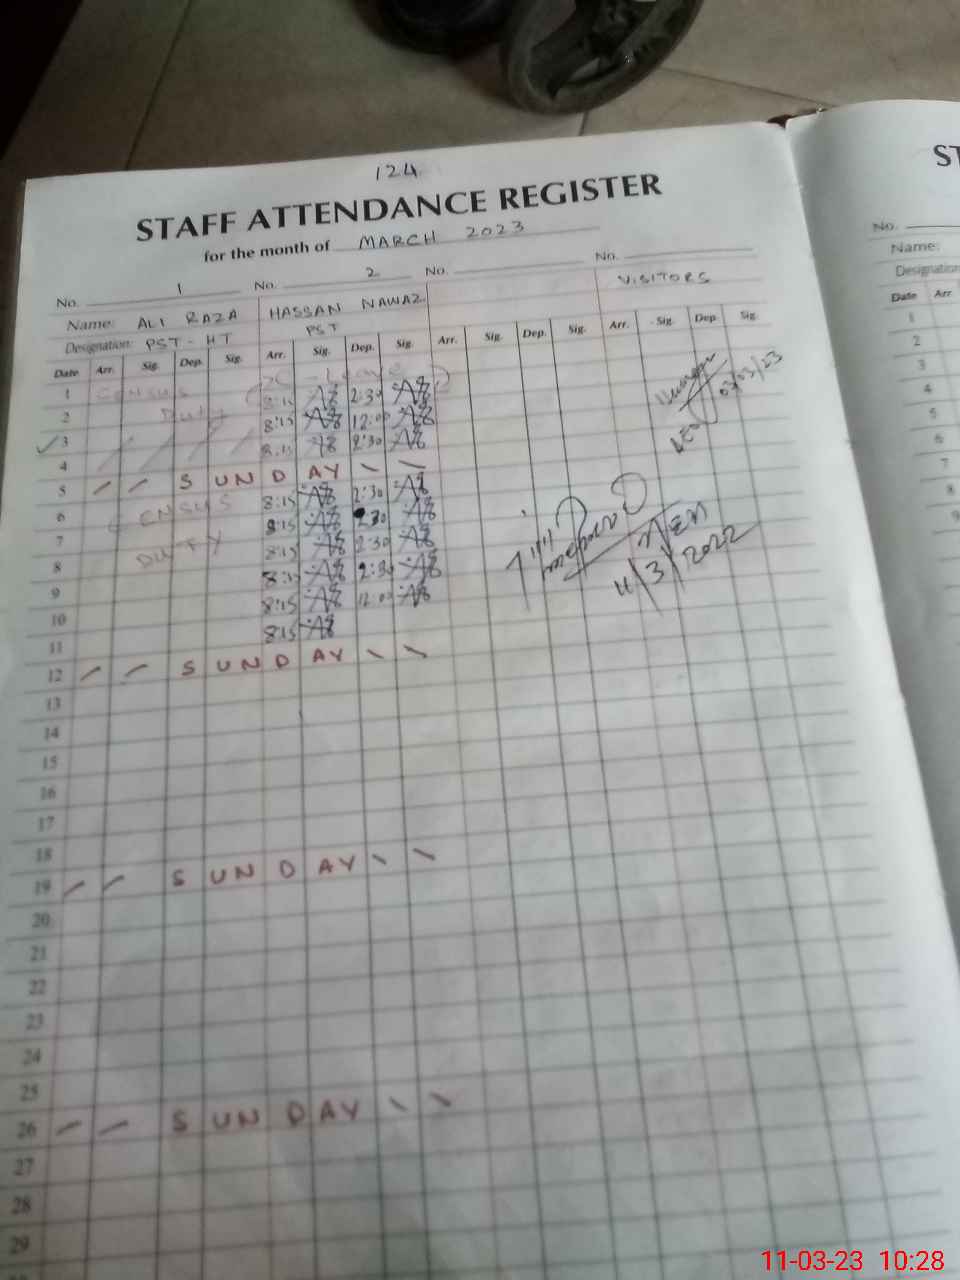 124
STAFF ATTENDANCE REGISTER
for the month of MARCH 2023
No. 1 No. 2 No. No.
Name: ALI RAZA HASSAN NAWAZ VISITORS
Designation: PST-HT PST
Date Arr. Sig. Dep. Sig. Arr. Sig. Dep. Sig. Arr. Sig. Dep. Sig. Arr. Sig. Dep. Sig.
Leave
1 Census 8:15 2:30
2 Duty 8:15 12:00 03/03/23
3 8:15 2:30
4
5 SUNDAY
6 CNSUS 8:15 2:30
7 8:15 2:30
8 DUTY 8:15 2:30
9 8:15 2:30 11/3/2022
10 8:15 12:00
11 8:15
12 SUNDAY
13
14
15
16
17
18
19 SUNDAY
20
21
22
23
24
25
26 SUNDAY
27
28
29
ST
No.
Name:
Designation
Date Arr
1
2
3
4
5
6
7
8
9
11-03-23 10:28